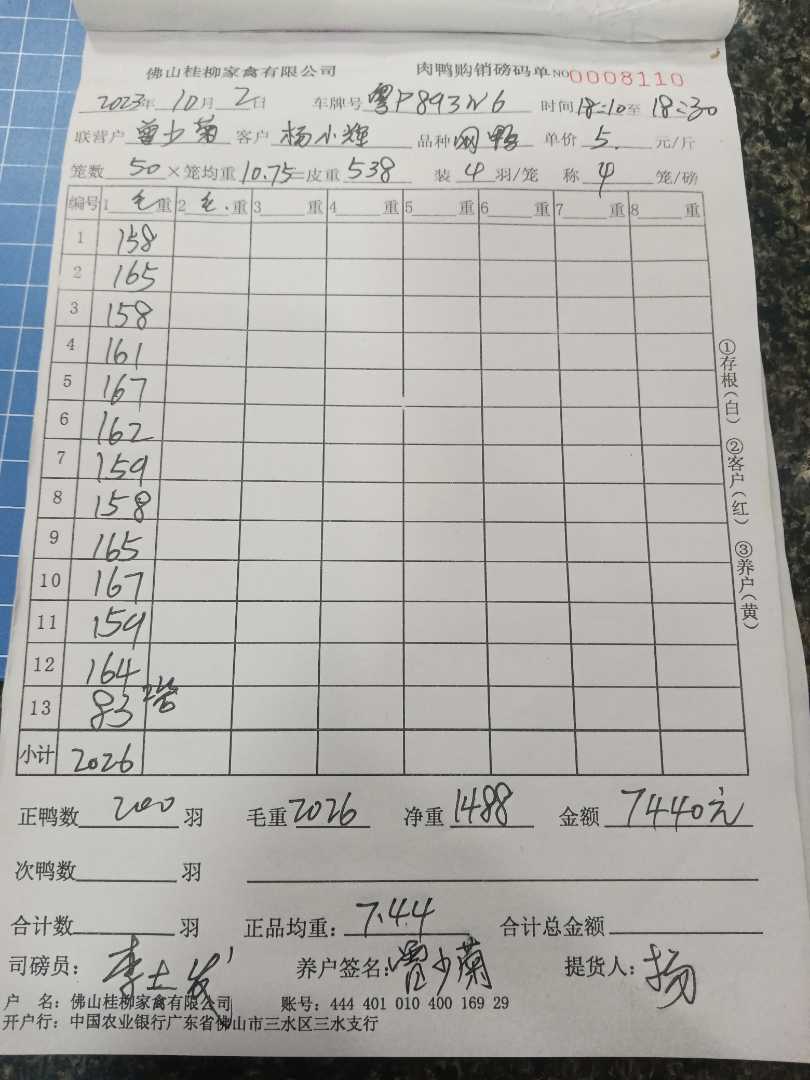 佛山桂柳家禽有限公司 肉鸭购销磅码单 NO 0008110
2023年 10月 2日 车牌号 粤P893W6 时间 18:10至 18:30
联营户 曾少菊 客户 杨小辉 品种 网鸭 单价 5. 元/斤
笼数 50 ×笼均重 10.75=皮重 538 装 4 羽/笼 称 4 笼/磅
编号 1 毛 重 2 毛. 重 3 重 4 重 5 重 6 重 7 重 8 重
1 158
2 165
3 158
4 161
5 167
6 162
7 159
8 158
9 165
10 167
11 159
12 164
13 83 2笼
小计 2026
①存根(白) ②客户(红) ③养户(黄)
正鸭数 200 羽 毛重 2026 净重 1488 金额 7440元
次鸭数 羽
合计数 羽 正品均重: 7.44 合计总金额
司磅员: 李土发 养户签名: 曾少菊 提货人: 杨
户 名: 佛山桂柳家禽有限公司 账号: 444 401 010 400 169 29
开户行: 中国农业银行广东省佛山市三水区三水支行